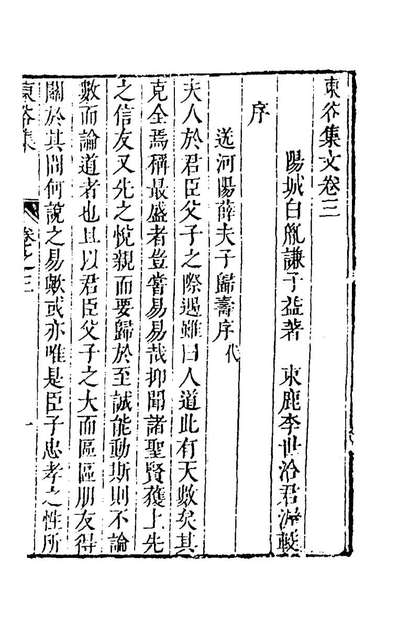 東谷集文卷三
陽城白胤謙子益著 束鹿李世洽君渥較
序
送河陽薛夫子歸壽序代
夫人於君臣父子之際遇雖曰人道此有天數矣其
克全焉稱最盛者豈嘗易易哉抑聞諸聖賢獲上先
之信友又先之悅親而要歸於至誠能動斯則不論
數而論道者也且以君臣父子之大而區區朋友得
關於其間何說之易歟或亦唯是臣子忠孝之性所
東谷集 卷之三 一